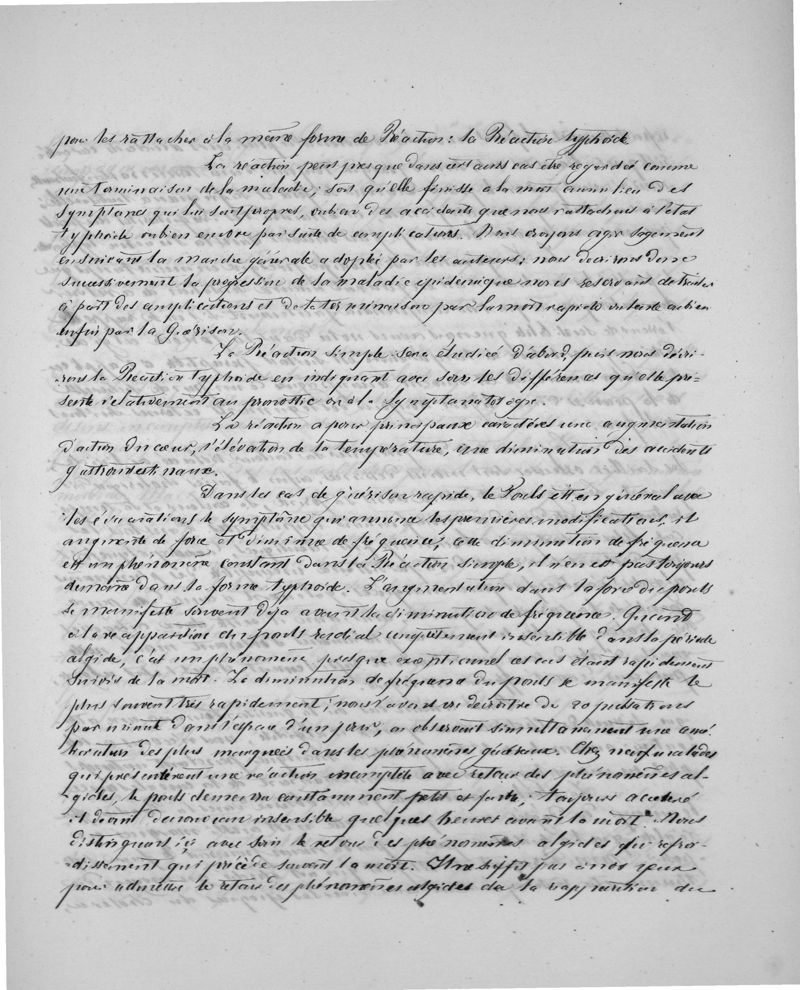 pour les rattacher à la même forme de Réaction : la Réaction typhoïde
La réaction peut presque dans tous cas être regardée comme
une terminaison de la maladie ; soit qu'elle finisse à la mort au milieu des
symptômes qui lui sont propres, ou bien des accidents que nous rattachons à l'état
typhoïde ou bien encore par suite de complications. Nous croyons agir sagement
en suivant la marche générale adoptée par les auteurs ; nous décrirons donc
successivement la progression de la maladie épidémique nous réservant de traiter
à part des complications et de la terminaison par la mort rapide ou lente ou bien
enfin par la Guérison.
La Réaction simple sera étudiée d'abord, puis nous décri-
rons la Réaction typhoïde en indiquant avec soin les différences qu'elle pré-
sente relativement au pronostic et à la Symptomatologie.
La réaction a pour principaux caractères une augmentation
d'action du cœur, l'élévation de la température, une diminution des accidents
gastrointestinaux.
Dans les cas de guérison rapide, le Pouls est en général avec
les évacuations le symptôme qui annonce les premières modifications, il
augmente de force et diminue de fréquence, cette diminution de fréquence
est un phénomène constant dans la Réaction simple, il n'en est pas toujours
de même dans la forme typhoïde. L'augmentation dans la force du pouls
se manifeste souvent déjà avant la diminution de fréquence. Quand
à la réapparition du pouls radial complètement insensible dans la période
algide, c'est un phénomène presque exceptionnel ces cas étant rapidement
suivis de la mort. La diminution de fréquence du pouls se manifeste le
plus souvent très rapidement ; nous l'avons vu décroître de 20 pulsations
par minute dans l'espace d'un jour, en observant simultanément une amé-
lioration des plus marquées dans les phénomènes généraux. Chez neuf malades
qui présentèrent une réaction incomplète avec retour des phénomènes al-
gides, le pouls demeura constamment petit et faible, toujours accéléré
et étant de nouveau insensible quelques heures avant la mort. Nous
distinguons ici avec soin le retour des phénomènes algides du refroi-
dissement qui précède souvent la mort. Il ne suffit pas à nos yeux
pour admettre le retour des phénomènes algides de la réapparition du